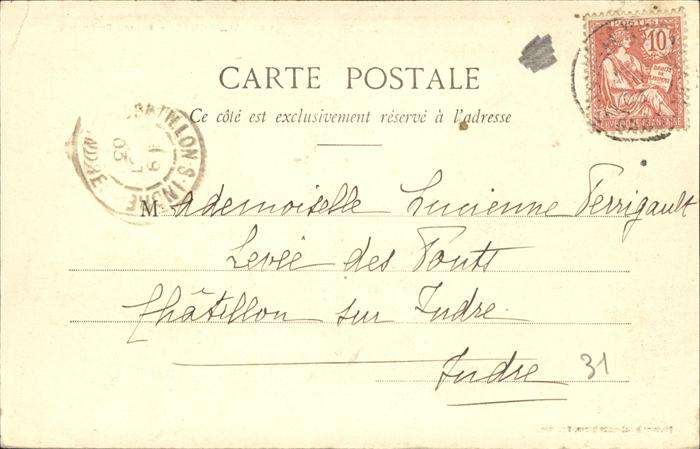 CARTE POSTALE
Ce côté est exclusivement réservé à l'adresse
POSTES
10
DROITS DE L'HOMME
CHATILLON S INDRE
19
05
Mademoiselle Lucienne Perrigault
Levée des Ponts
Châtillon sur Indre
Indre
31